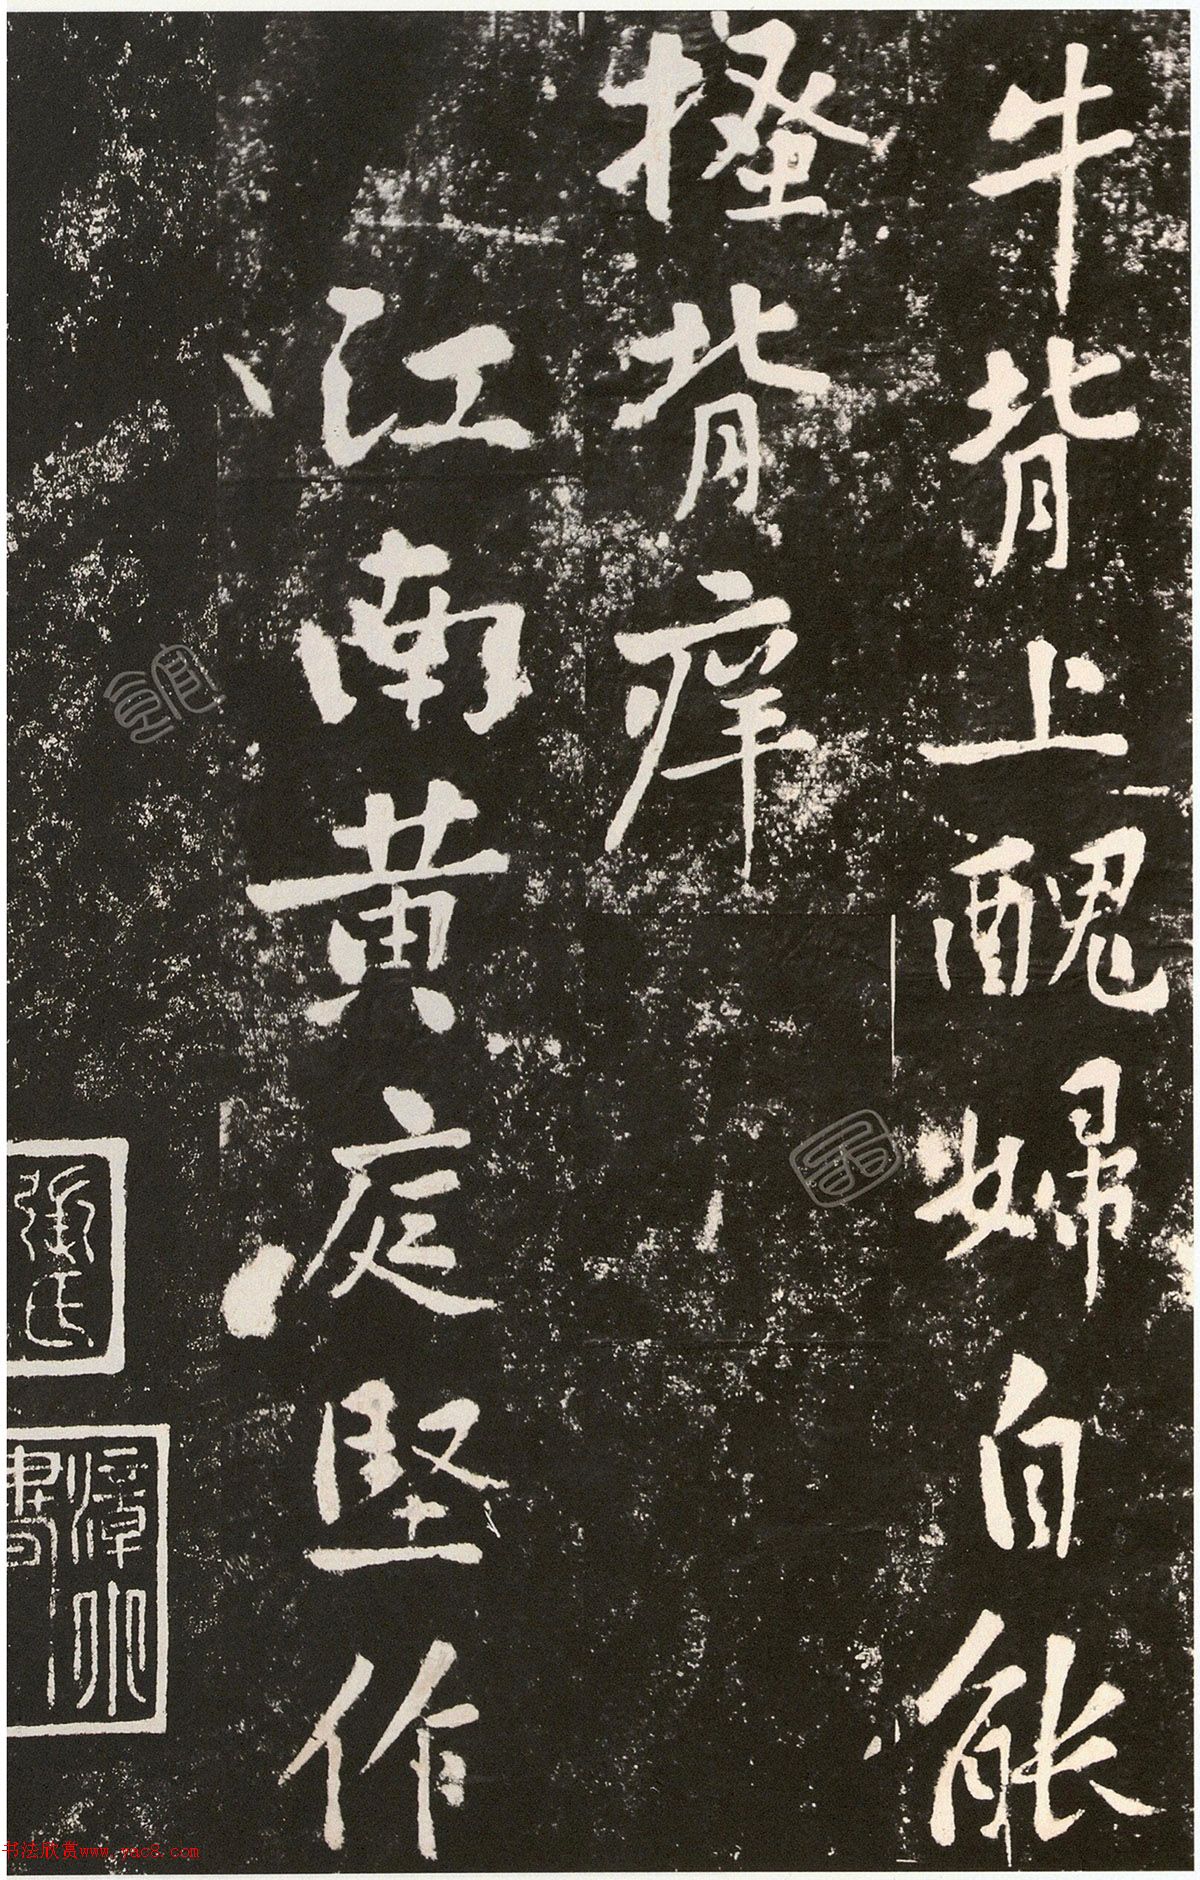 牛背上醜婦自能
搔背痒
江南黄庭堅作
張氏
漳水
書
书法欣赏www.yac8.com